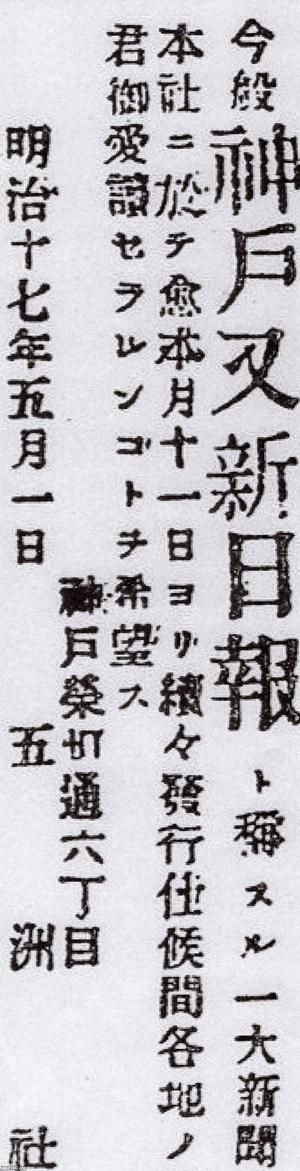 今般神戸又新日報ト稱スル一大新聞
本社ニ於テ愈本月十一日ヨリ續々發行仕候間各地ノ
君御愛讀セラレンゴトヲ希望ス
神戸榮町通六丁目
明治十七年五月一日 五洲社